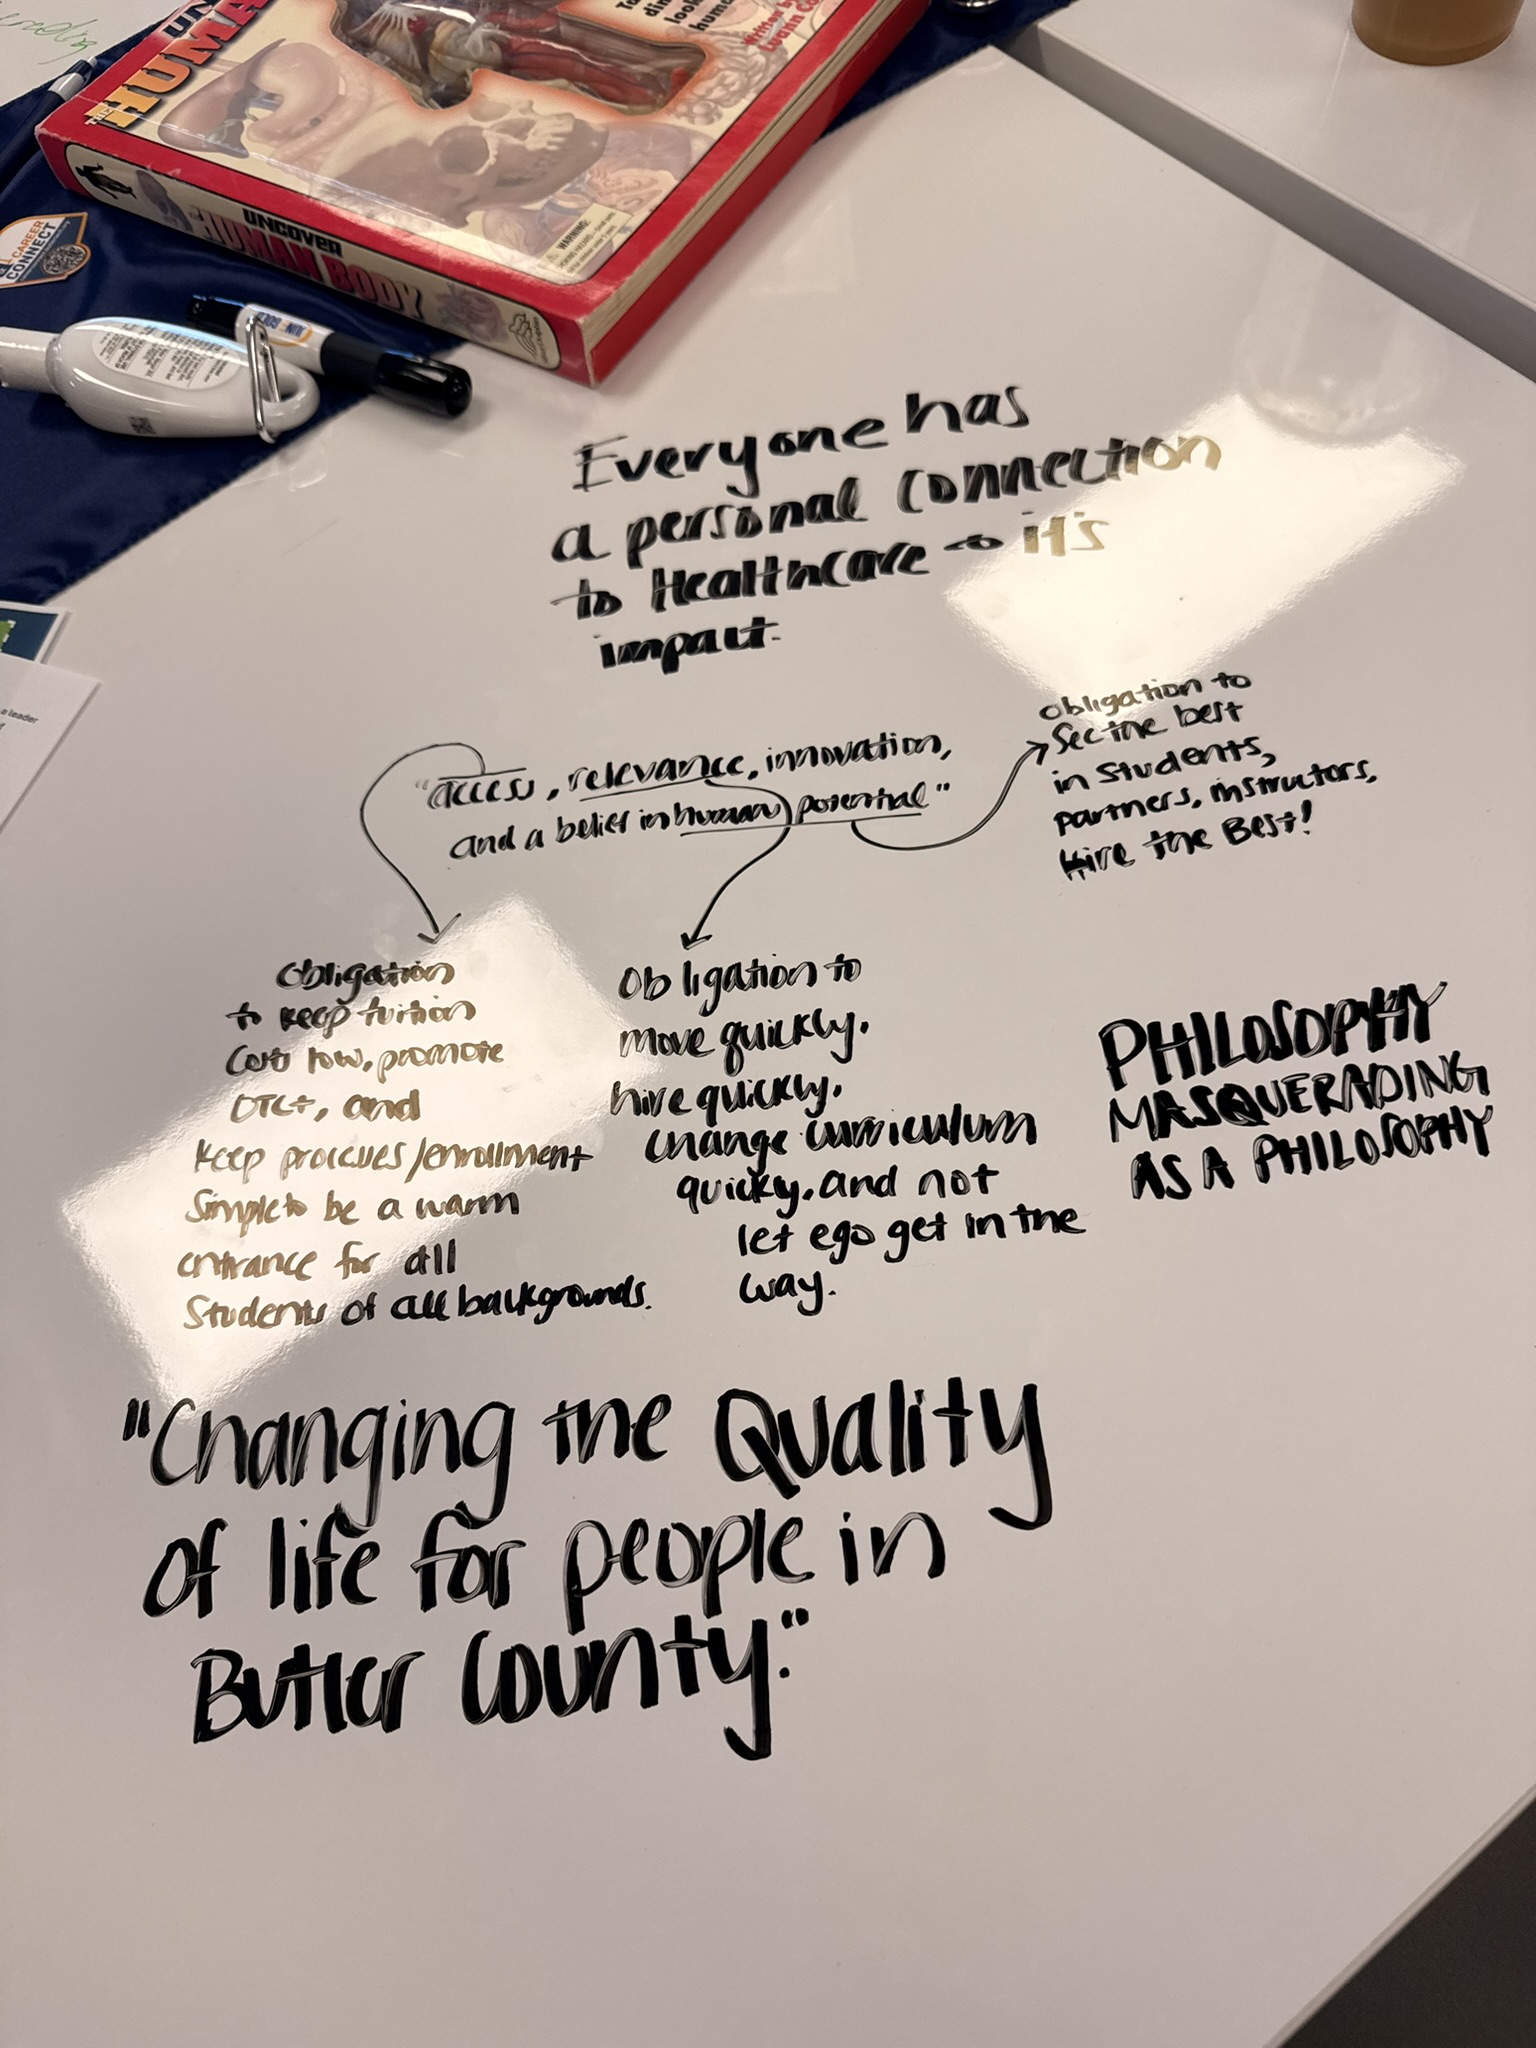 UN
THE HUMA
UNCOVER
THE HUMAN BODY
WARNING:
CAREER
CONNECT
a leader
Everyone has
a personal connection
to Healthcare → it's
impact.
"access, relevance, innovation,
and a belief in human potential"
Obligation to
See the best
in students,
partners, instructors,
Hire the Best!
Obligation
to keep tuition
Costs low, promote
and
keep processes/enrollment
Simple to be a warm
entrance for all
Students of all backgrounds.
Obligation to
move quickly,
hire quickly,
Change curriculum
quickly, and not
let ego get in the
way.
PHILOSOPHY
MASQUERADING
AS A PHILOSOPHY
"Changing the Quality
of life for people in
Butler County."